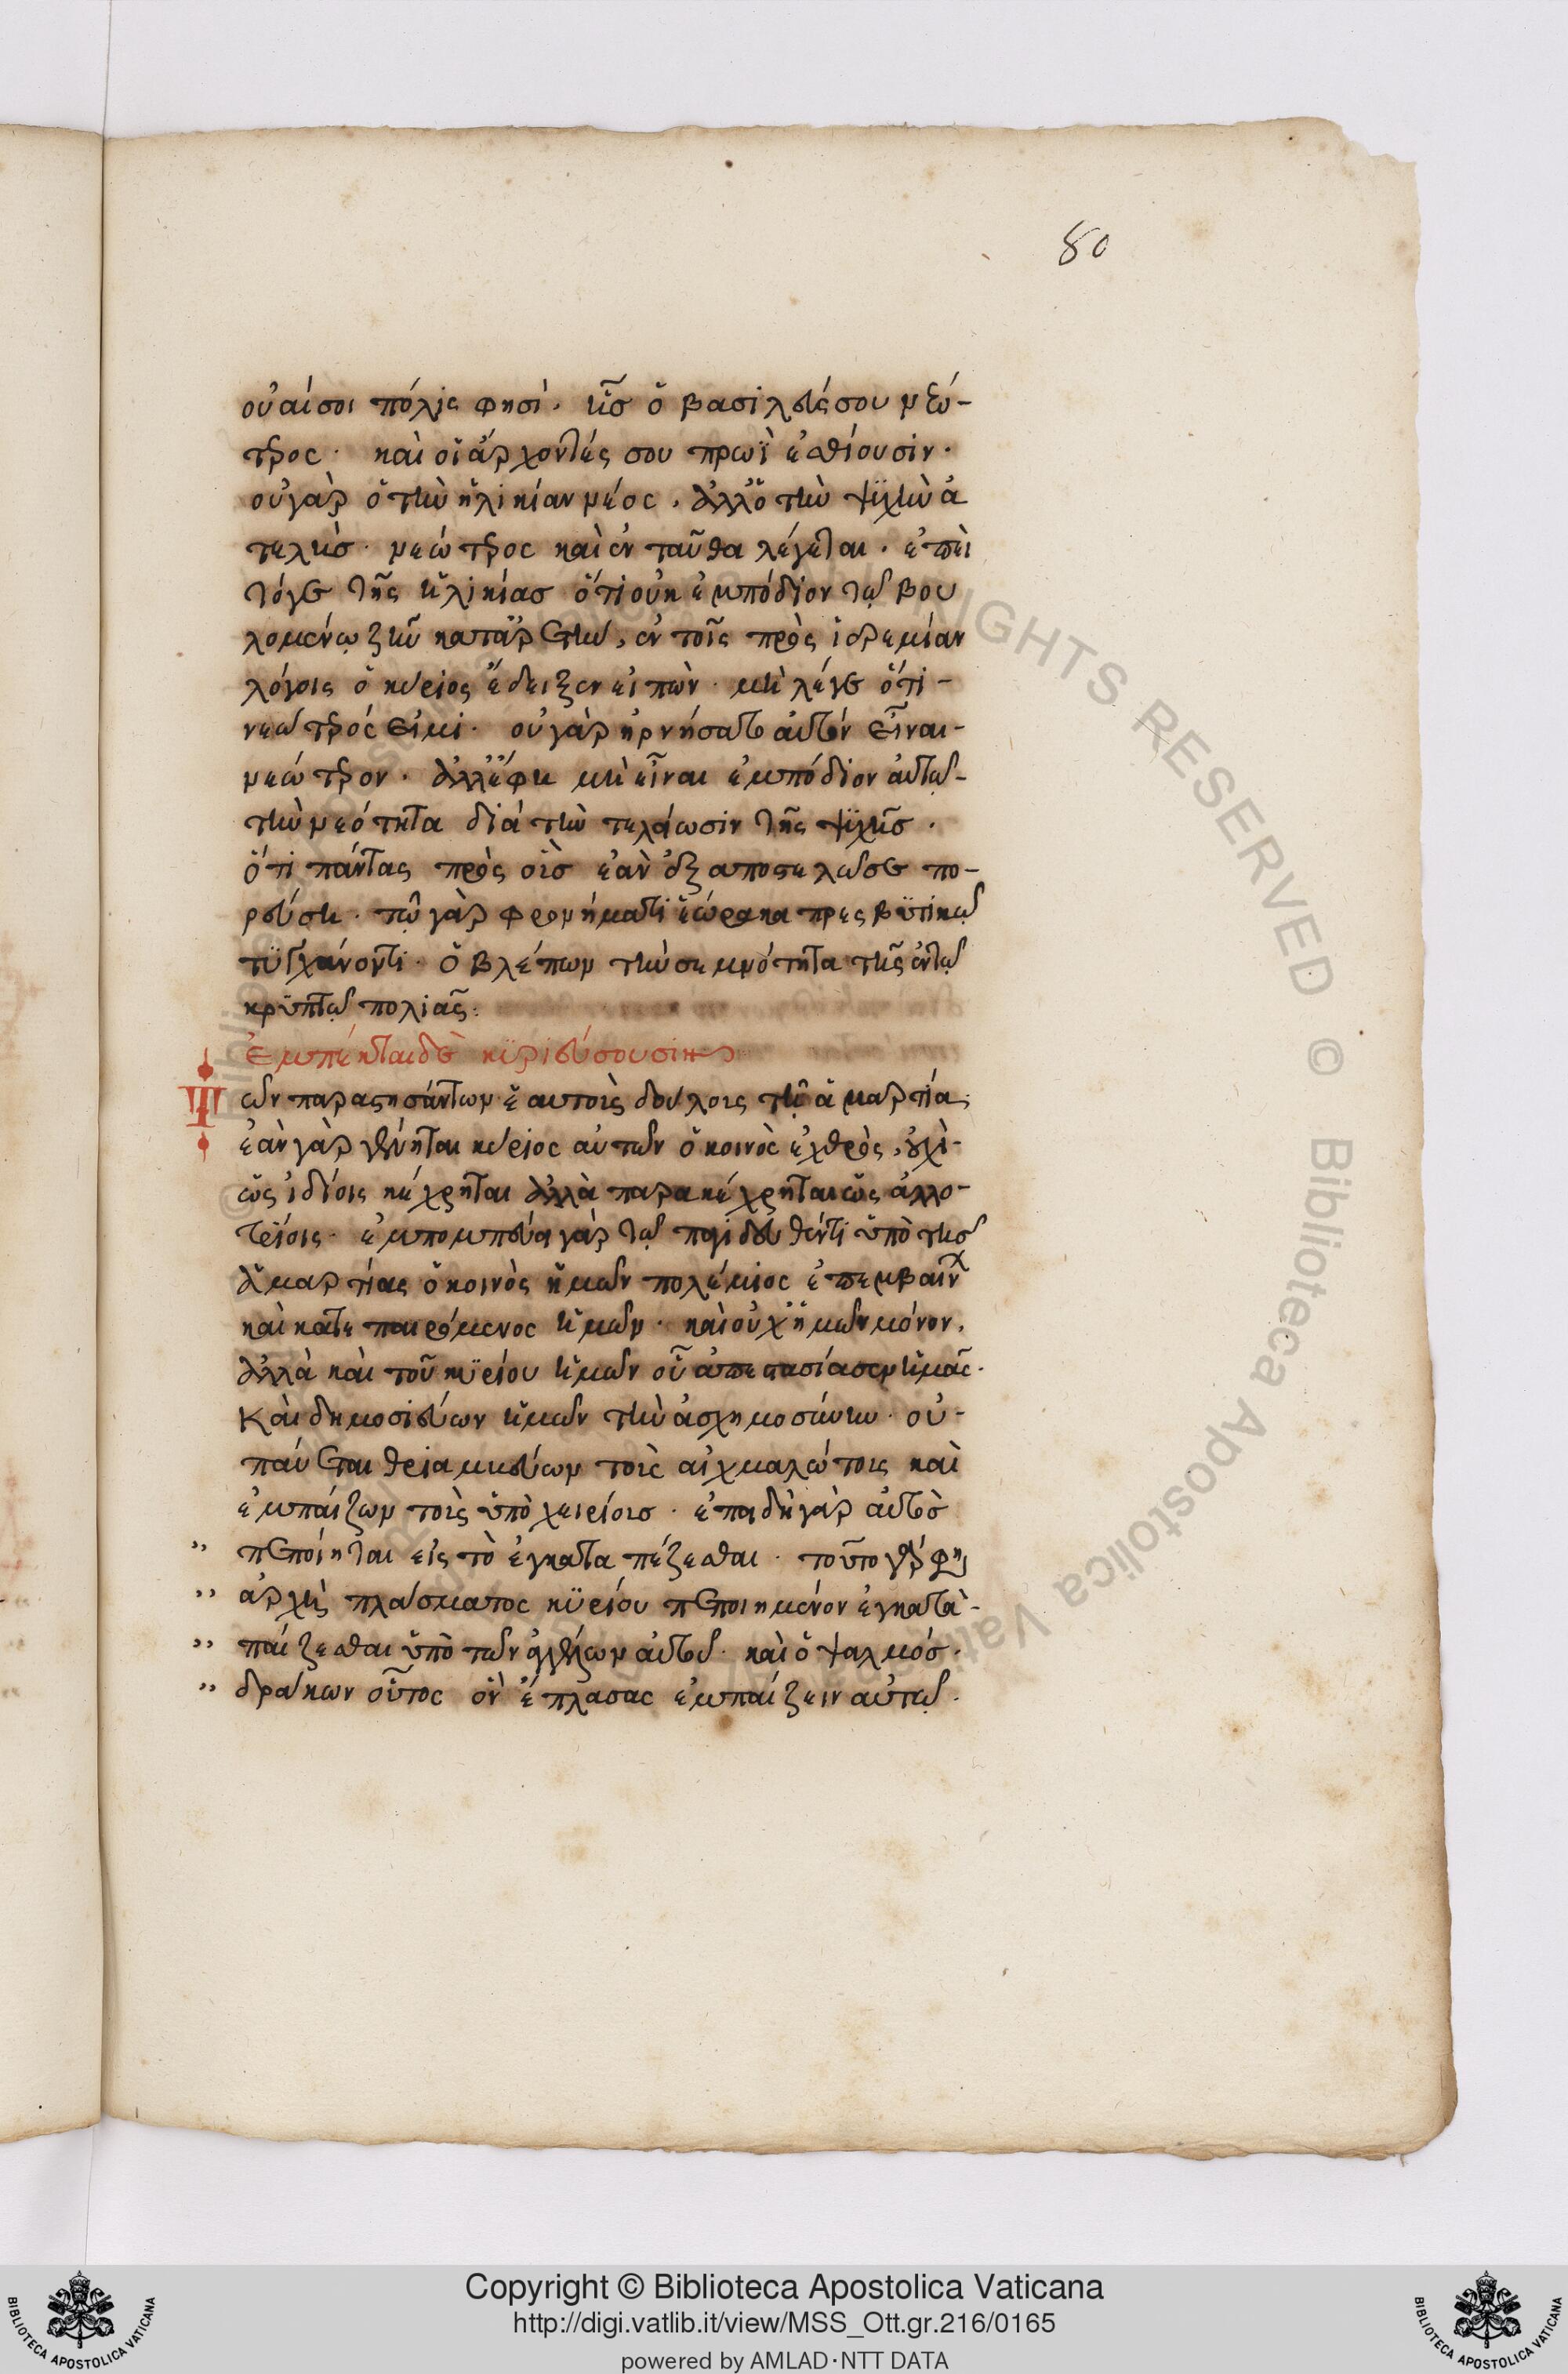 80
οὐαί σοι πόλις φησί. ἧς ὁ βασιλεύς σου νεώ-
τερος. καὶ οἱ ἄρχοντές σου πρωῒ ἐσθίουσιν.
οὐ γὰρ ὁ τὴν ἡλικίαν νέος, ἀλλ' ὁ τὴν ψυχὴν ἀ
τελὴς. νεώτερος καὶ ἐνταῦθα λέγεται. ἐπεὶ
τόγε τῆς ἡλικίας ὅτι οὐκ ἐμπόδιον τῷ βου
λομένῳ ζῆν κατ' ἀρετὴν, ἐν τοῖς πρὸς ἱερεμίαν
λόγοις ὁ κύριος ἔδειξεν εἰπὼν. μὴ λέγε ὅτι-
νεώτερός εἰμι. οὐ γὰρ ἠρνήσατο αὐτὸν εἶναι-
νεώτερον. ἀλλ' ἔφη μὴ εἶναι ἐμπόδιον αὐτῷ-
τὴν νεότητα διὰ τὴν τελείωσιν τῆς ψυχῆς.
ὅτι πάντας πρὸς οὓς ἐὰν ἐξαποστελῶ σε πο-
ρεύσῃ. τῷ γὰρ φρονήματι ἑώρακα πρεσβυτικῷ
τυγχάνοντι. ὁ βλέπων τὴν σεμνότητα τῆς ἐν τῷ
κρυπτῷ πολιᾶς.
Ἐμπέκται δὲ κυριεύσουσιν
Τῶν παραστησάντων ἑαυτοὺς δούλοις τῇ ἁμαρτίᾳ.
ἐὰν γὰρ γένηται κύριος αὐτῶν ὁ κοινὸς ἐχθρὸς, οὐχὶ-
ὡς ἰδίοις κέχρηται ἀλλὰ παρακέχρηται ὡς ἀλλο-
τρίοις. ἐμπομπεύει γὰρ τῷ παγιδευθέντι ὑπὸ τῆς
ἁμαρτίας ὁ κοινὸς ἡμῶν πολέμιος ἐπεμβαίνων
καὶ κατεπαιρόμενος ἡμῶν. καὶ οὐχ ἡμῶν μόνον,
ἀλλὰ καὶ τοῦ κυρίου ἡμῶν οὗ ἀπεστασίασεν ἡμᾶς.
Καὶ δημοσιεύων ἡμῶν τὴν ἀσχημοσύνην. οὐ-
παύεται θριαμβεύων τοῖς αἰχμαλώτοις καὶ
ἐμπαίζων τοῖς ὑποχειρίοις. ἐπειδὴ γὰρ αὐτὸς
" πεποίηται εἰς τὸ ἐγκαταπέζεσθαι. τοῦτο γὰρ φη
" ἀρχὴ πλάσματος κυρίου πεποιημένον ἐγκατα-
" παίζεσθαι ὑπὸ τῶν ἀγγέλων αὐτοῦ. καὶ ὁ ψαλμός.
" δράκων οὗτος ὃν ἔπλασας ἐμπαίζειν αὐτῷ.
GHTS RESERVED © Biblioteca Apostolica Vaticana
Copyright © Biblioteca Apostolica Vaticana
http://digi.vatlib.it/view/MSS_Ott.gr.216/0165
powered by AMLAD·NTT DATA
BIBLIOTECA APOSTOLICA VATICANA
BIBLIOTECA APOSTOLICA VATICANA